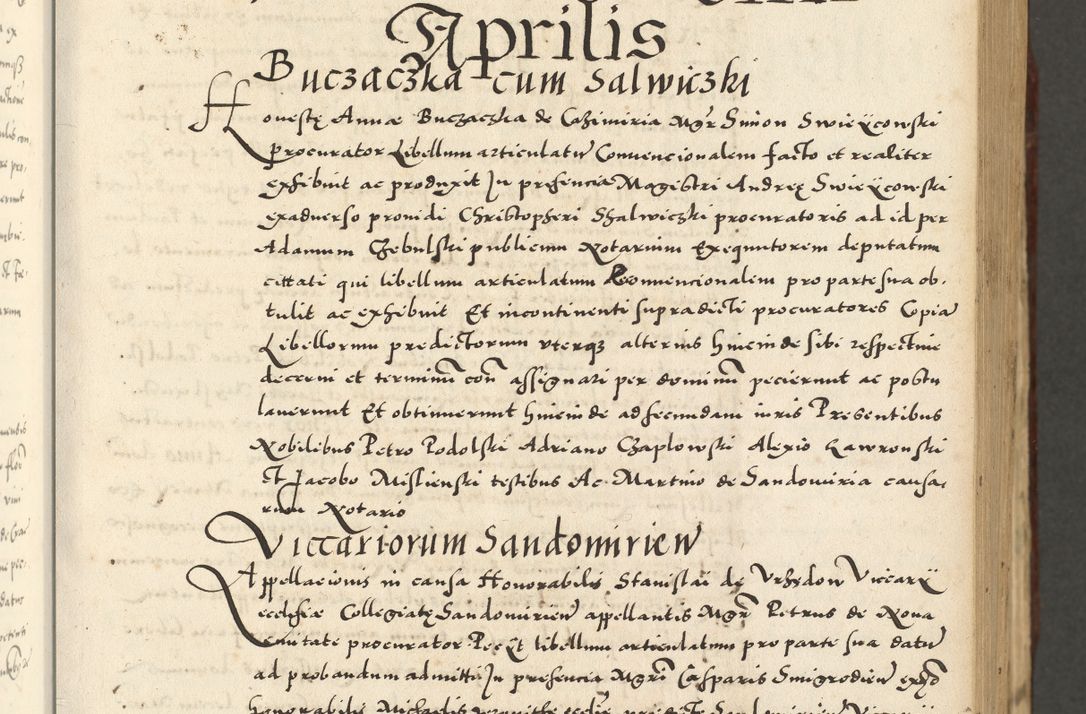 Aprilis
Buczaczka cum Salwiczki
Honestę Annae Buczaczka de Cazimiria Mgr Simon Swieÿcowski
procurator Libellum articulatu Convencionalem facto et realiter
exhibuit ac produxit In presencia Magistri Andreę Swieÿcowski
exadverso providi Christopheri Shalwiczki procuratoris ad id per
Adamum Czebulski publicum Notarium Exequutorem deputatum
cittati qui libellum articulatum Reconvencionalem pro parte sua ob-
tulit ac exhibuit Et incontinenti supradicti procuratores Copia
Libellorum predictorum uterqz alterius hincinde sibi respective
decerni et terminu con assignari per dominu pecierunt ac postu
laverunt Et obtinuerunt hincinde ad secundam iuris Presentibus
Nobilibus Petro Podolski Adriano Czaplowski Alexio Lawronski
Et Jacobo Mislienski testibus Ac Martino de Sandomiria causa-
rum Notario
Viccariorum Sandomirien
Appellacionis in causa Honorabilis Stanislai de Urzhedow Viccarÿ
ecclesiae Collegiatę Sandomirien appellantis Mgr Petrus de Nova
civitate procurator libellum articulatum pro parte sua datu
ad probandum admitti In presencia Mgri Casparis Smigrodien
honorabilis Michaelis